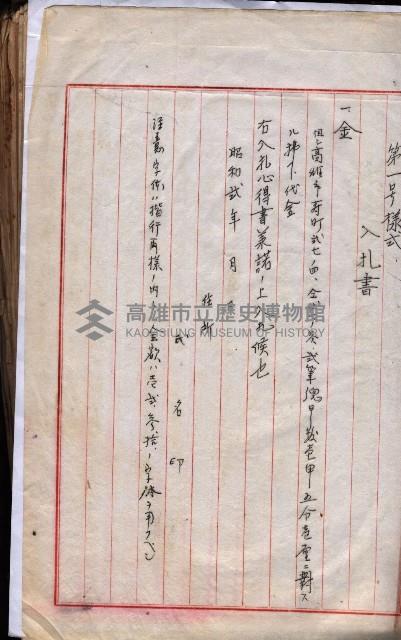 第一号樣式
入札書
一金
但シ高雄市壽町貳七ノ四、仝 貳筆總甲數壱甲五分壱厘ニ對ス
ル拂下代金
右入札心得書承諾ノ上入札候也
昭和貳年 月 日
住所
氏名 印
注意 字体ハ楷行両樣ノ内、金額ハ壱、貳、參、拾、ノ字体ヲ用フベシ
高雄市立歷史博物館
KAOHSIUNG MUSEUM OF HISTORY